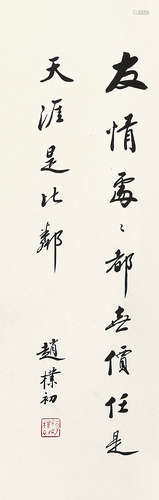 友情處〻都無價任是
天涯是比鄰
趙樸初